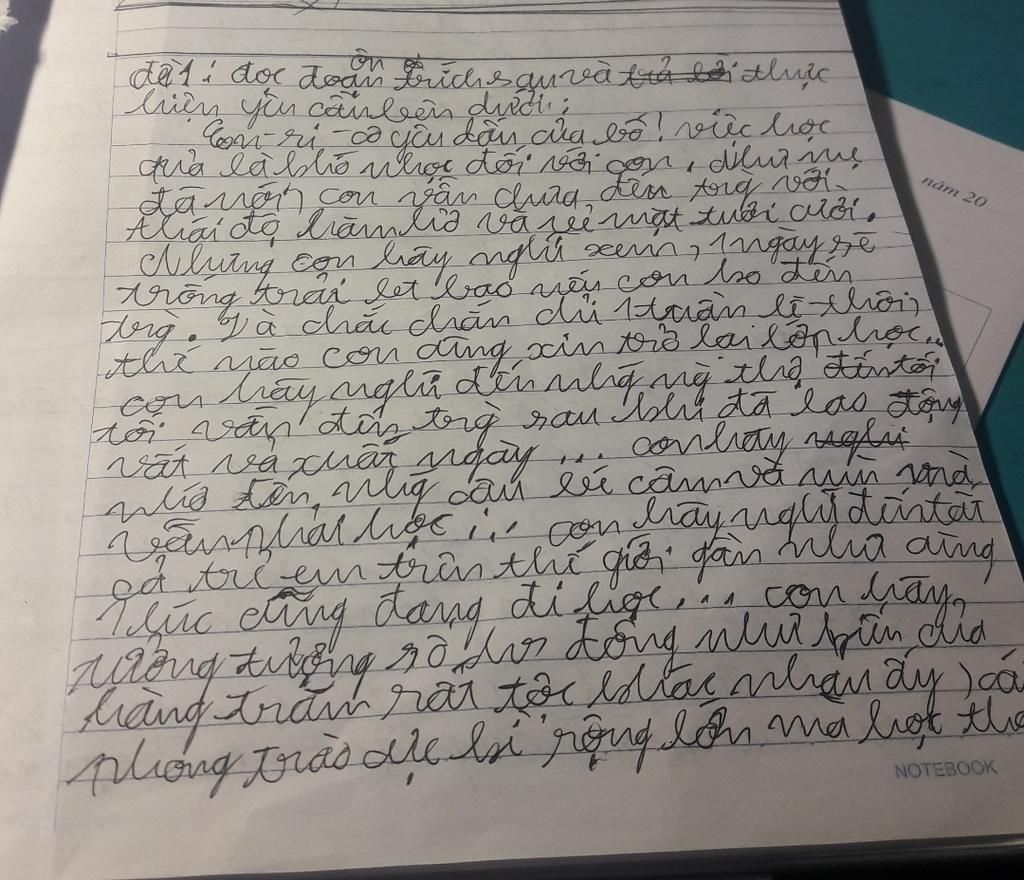 ôn
đề 1: đọc đoạn trích sau và trả lời thực
hiện yêu cầu bên dưới:
En-ri-cô yêu dấu của bố! việc học
quả là khó nhọc đối với con, như mẹ
đã nói, con vẫn chưa đến trg với
thái độ hăm hở và vẻ mặt tươi cười.
Nhưng con hãy nghĩ xem, 1 ngày sẽ
trống trải biết bao nếu con ko đến
trg. Và chắc chắn chỉ 1 tuần lễ thôi,
thế nào con cũng xin trở lại lớp học...
con hãy nghĩ đến nhg ng thợ đến tối
tối vẫn đến trg sau khi đã lao động
vất vả suốt ngày... con hãy nghĩ
nhớ đến nhg cậu bé câm và mù mà
vẫn phải học... con hãy nghĩ đến tất
cả trẻ em trên thế giới gần như cùng
1 lúc cũng đang đi học... con hãy
tưởng tượng đông như kiến của
hàng trăm rất tộc khác nhau ấy, cái
phong trào cực kì rộng lớn mà học
NOTEBOOK
năm 20